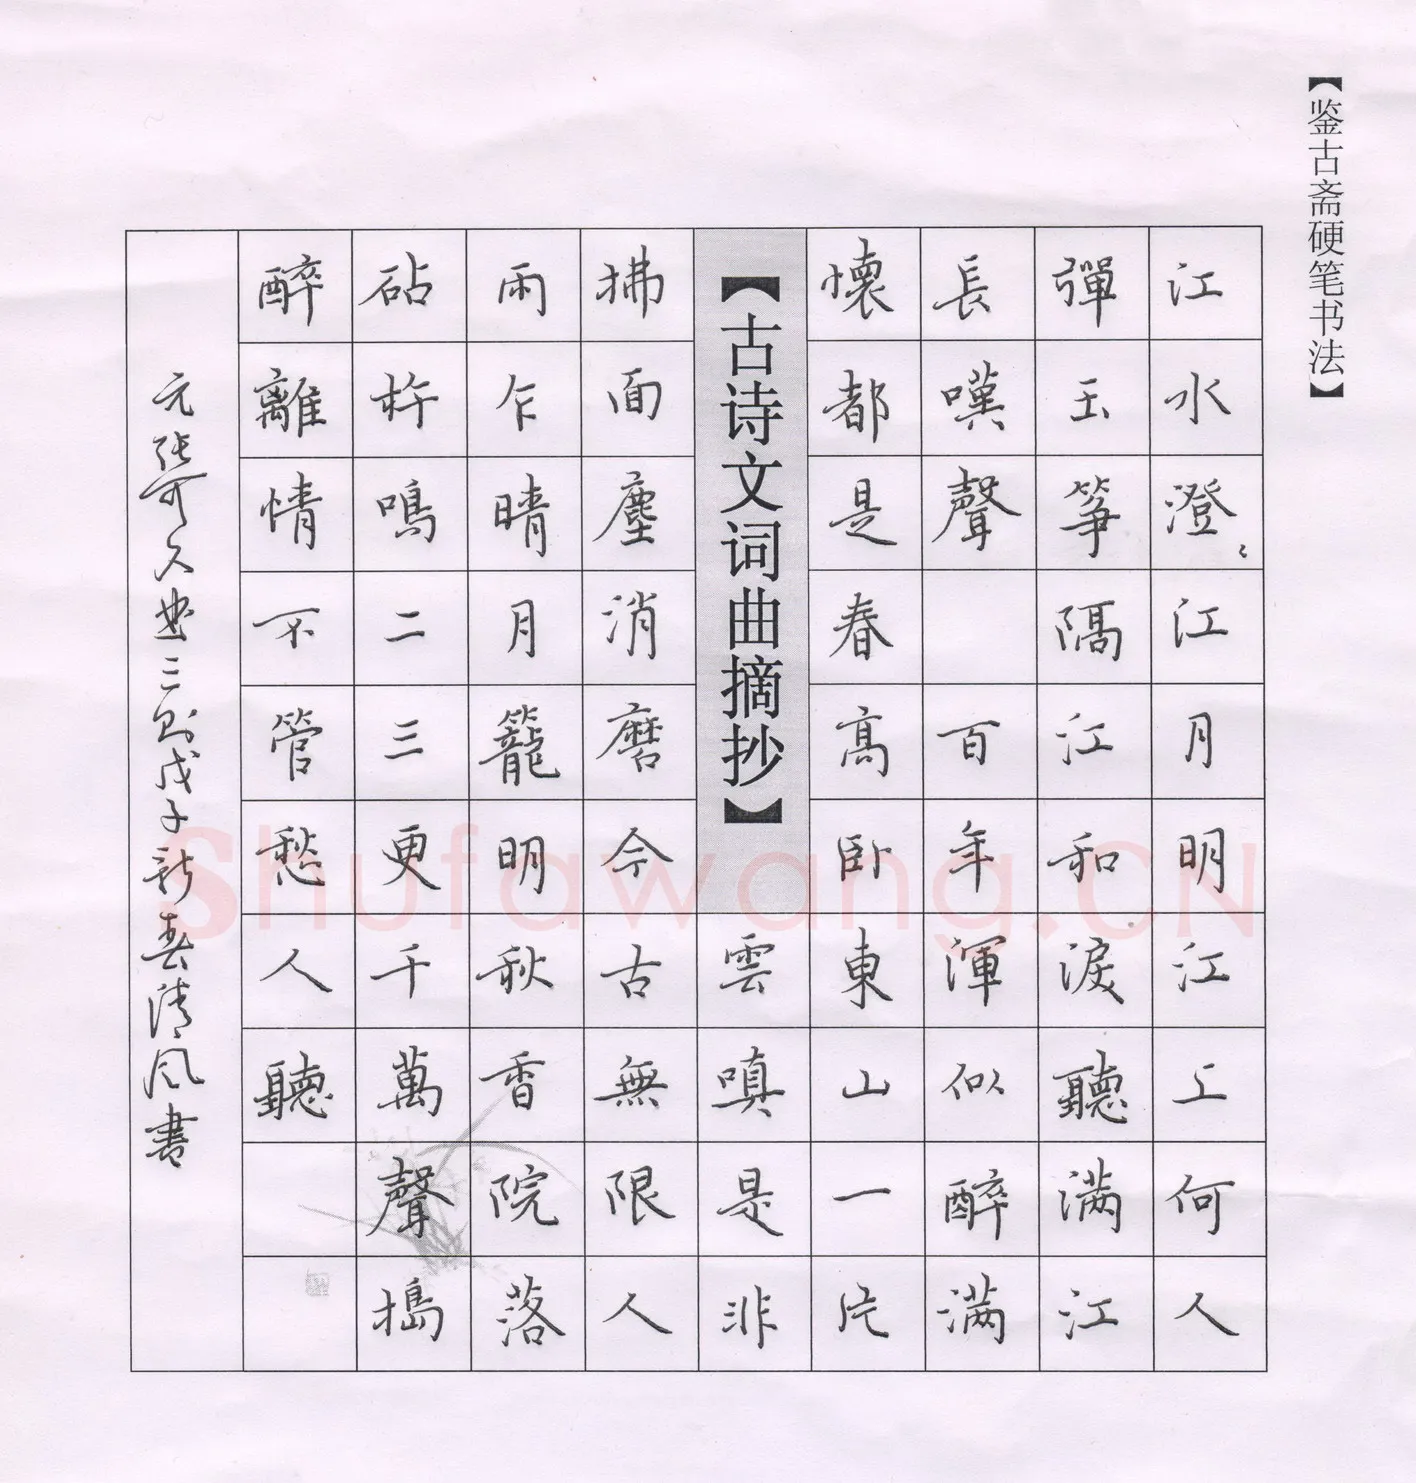 【鉴古斋硬笔书法】
江水澄〻江月明江上何人
彈玉筝隔江和淚聽滿江
長嘆聲 百年渾似醉滿
懷都是春高卧東山一片
【古诗文词曲摘抄】
雲嗔是非
拂面塵消磨今古無限人
雨乍晴月籠明秋香院落
砧杵鳴二三更千萬聲搗
醉離情不管愁人聽
元張可久曲三則戊子新春清风書
Shufawang.CN